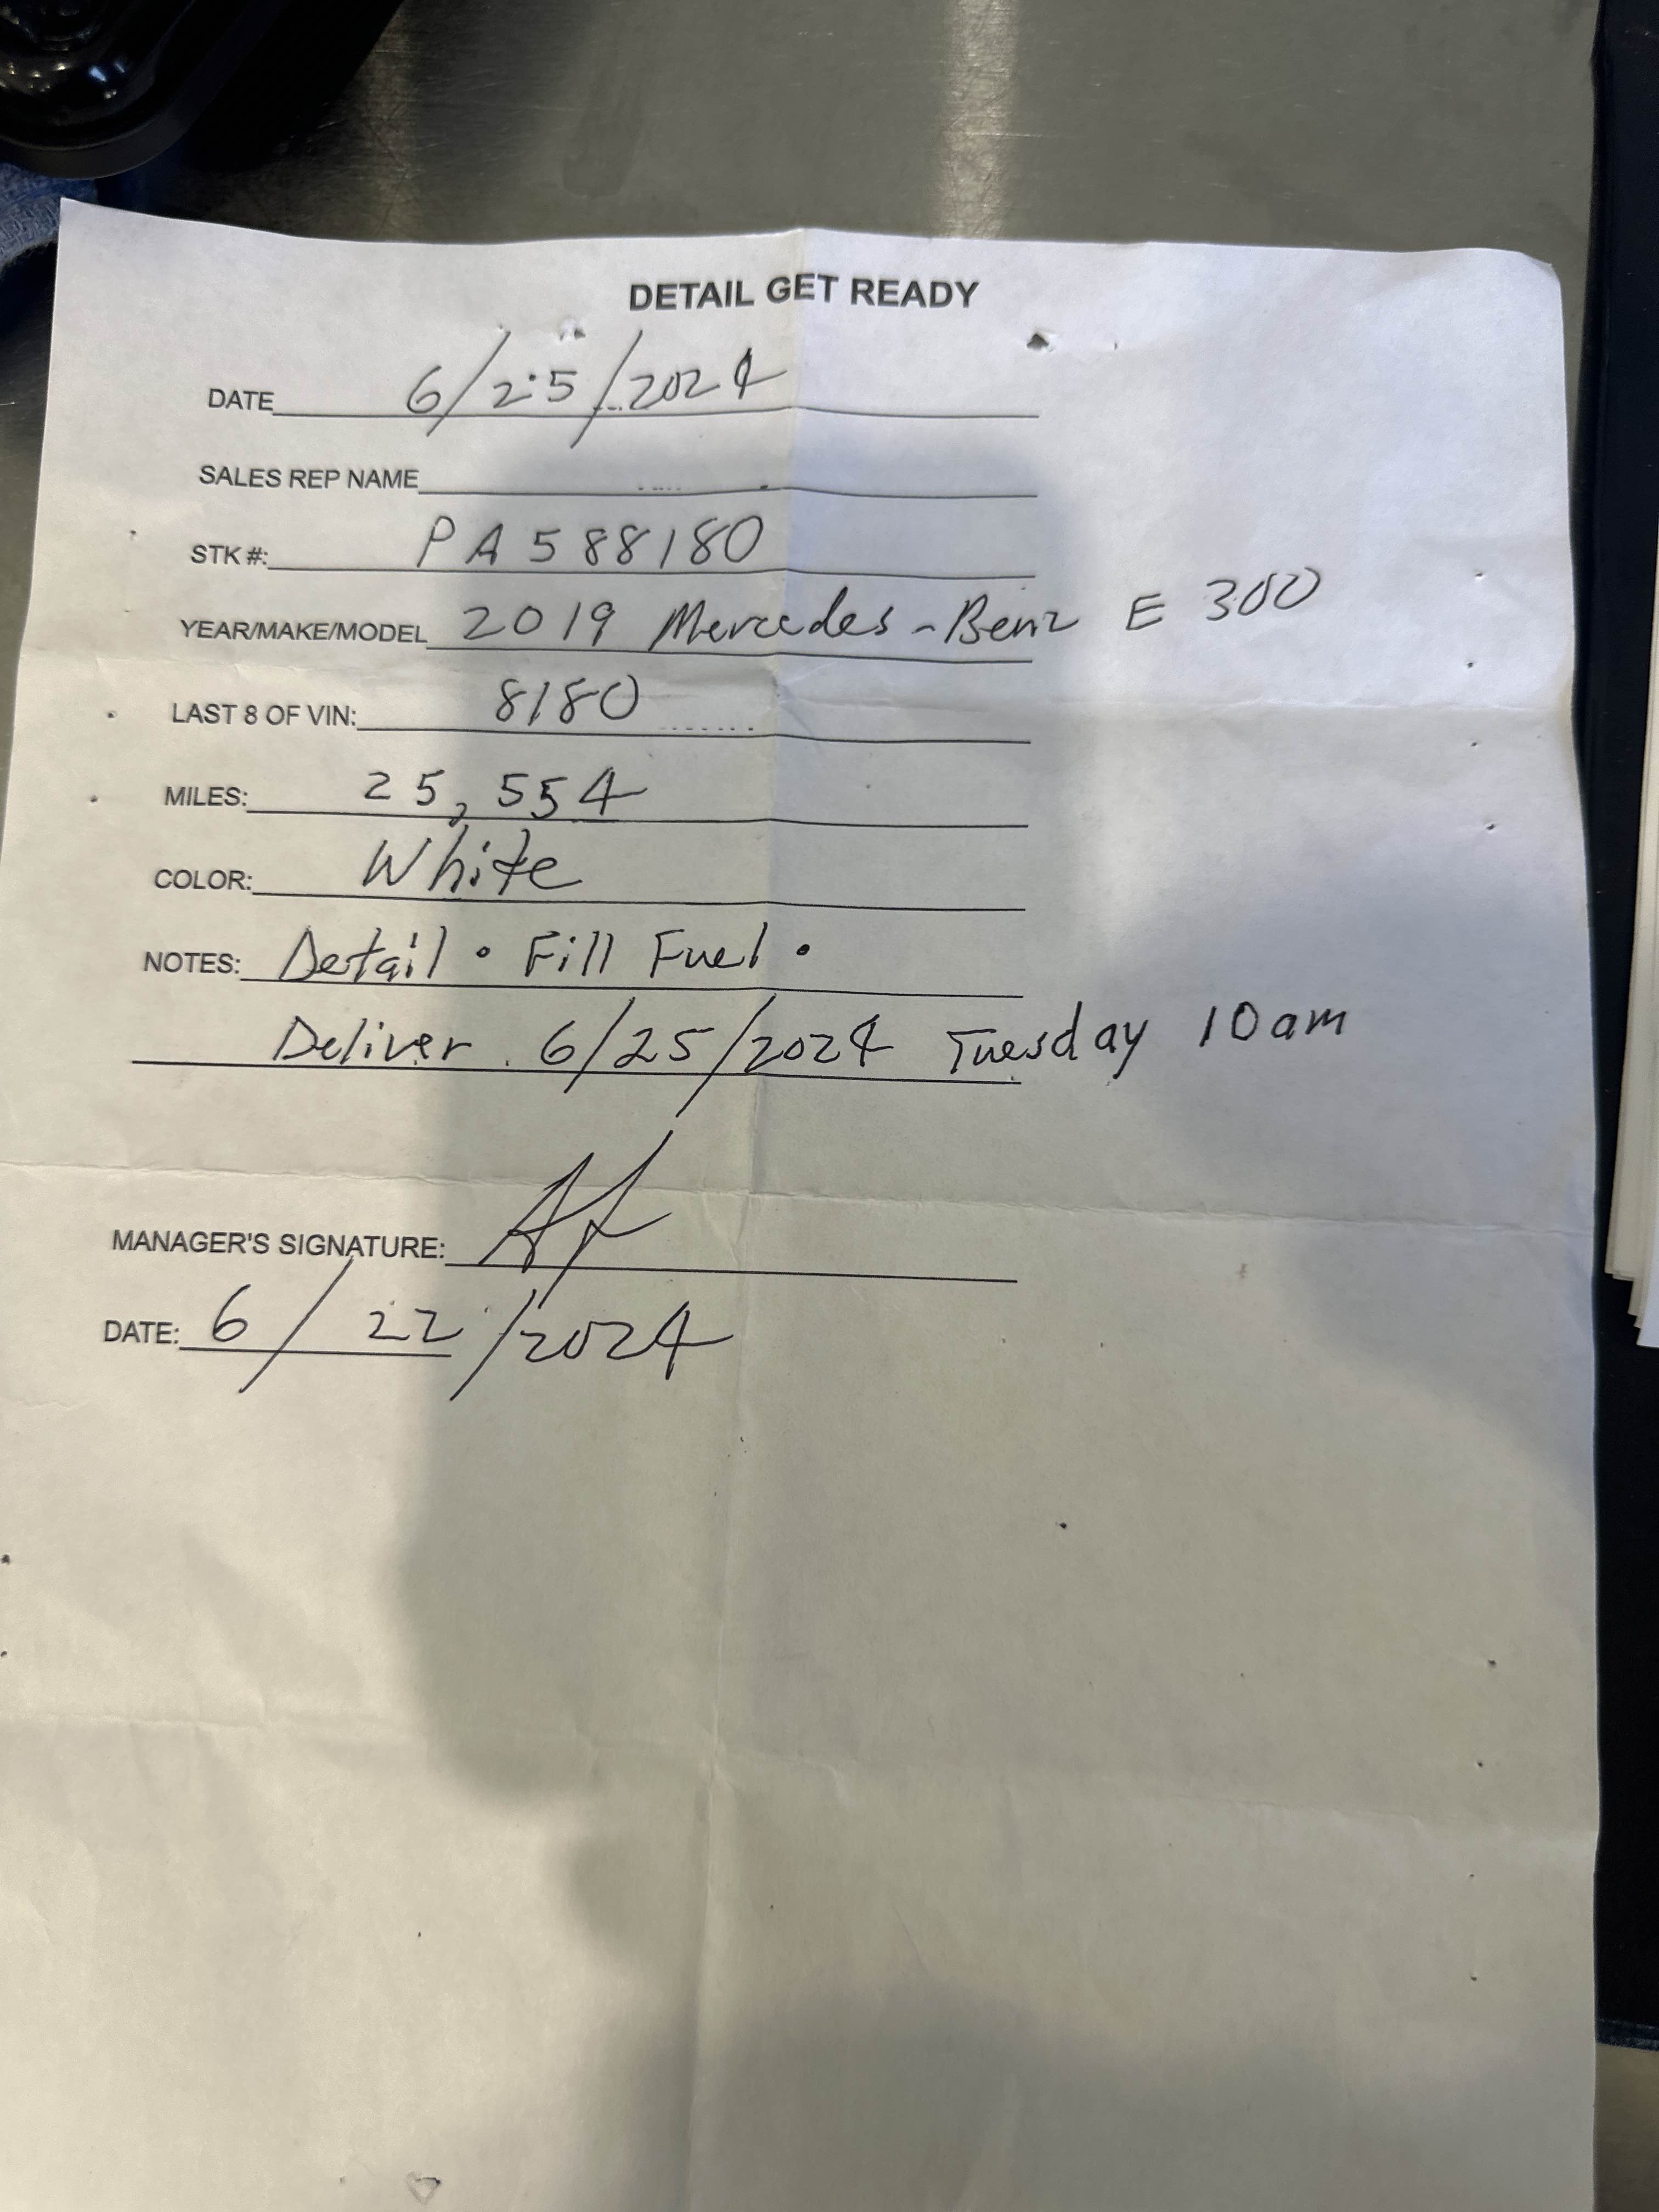 DETAIL GET READY
DATE 6/25/2024
SALES REP NAME
STK #: PA588180
YEAR/MAKE/MODEL 2019 Mercedes-Benz E 300
LAST 8 OF VIN: 8180
MILES: 25,554
COLOR: White
NOTES: Detail • Fill Fuel •
Deliver 6/25/2024 Tuesday 10am
MANAGER'S SIGNATURE:
DATE: 6/22/2024